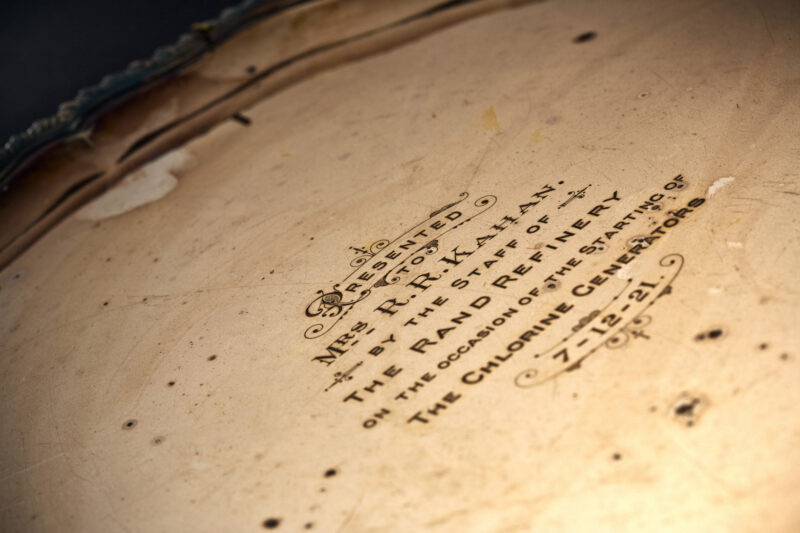 PRESENTED
TO
MRS R.R. KAHAN.
BY THE STAFF OF
THE RAND REFINERY
ON THE OCCASION OF THE STARTING OF
THE CHLORINE GENERATORS
7-12-21.